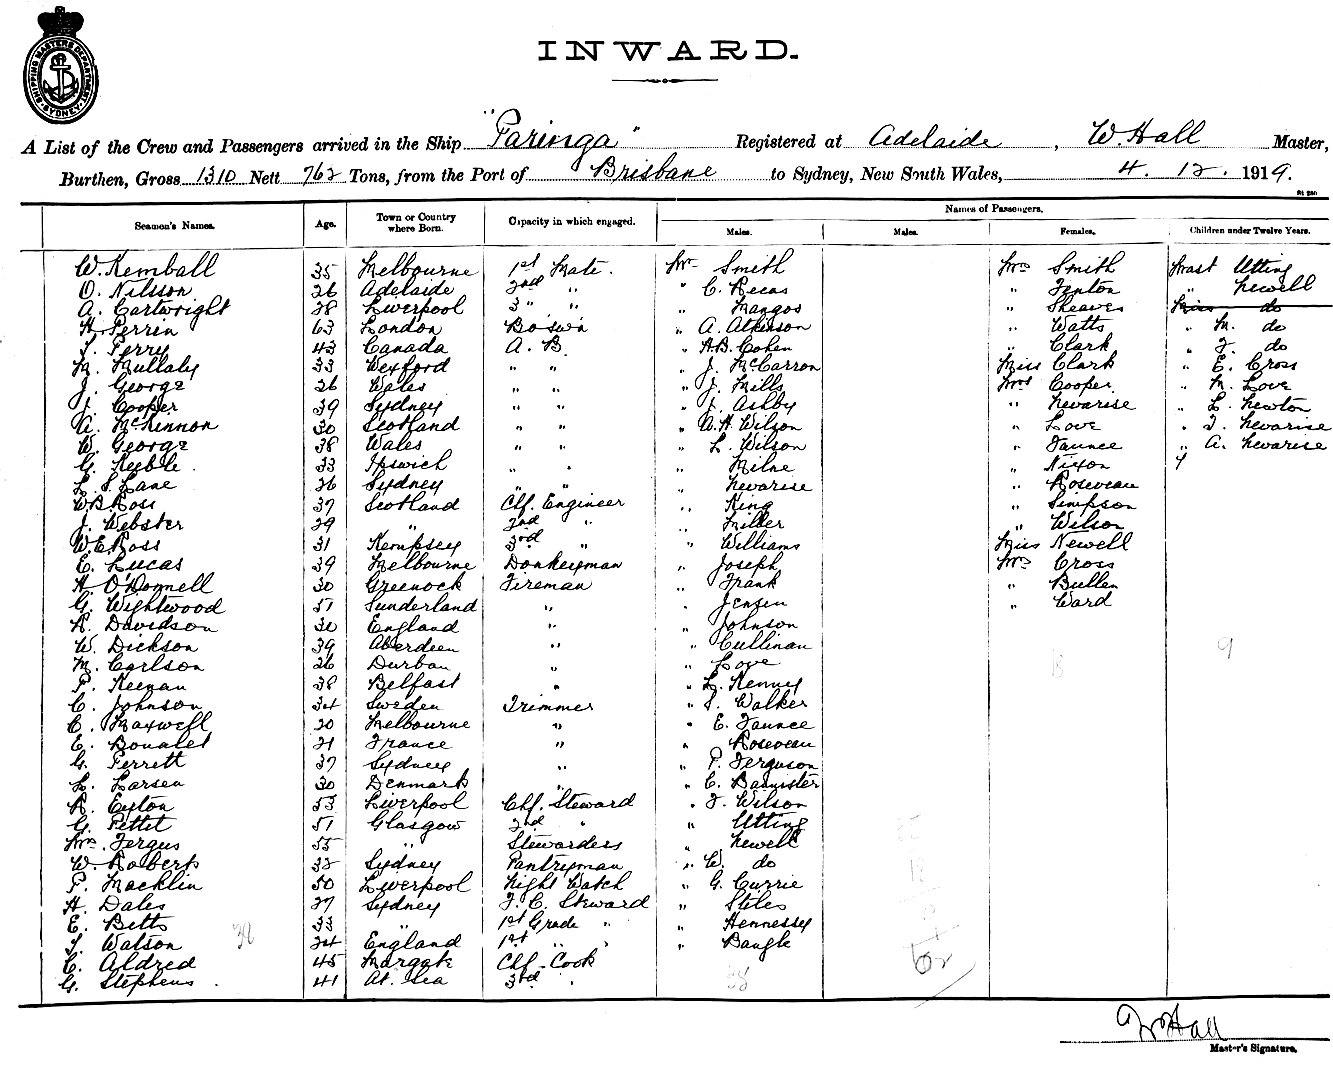 SHIPPING MASTERS DEPARTMENT SYDNEY
INWARD.
A List of the Crew and Passengers arrived in the Ship "Paringa" Registered at Adelaide, W. Hall Master,
Burthen, Gross 1310 Nett 762 Tons, from the Port of Brisbane to Sydney, New South Wales, 4. 12. 1919.
Names of Passengers.
Seamen's Names. Age. Town or Country where Born. Capacity in which engaged. Males. Males. Females. Children under Twelve Years.
W. Kemball 35 Melbourne 1st Mate. Mr Smith Mrs Smith Mast Utting
O. Nilsson 26 Adelaide 2nd " " C. " Fenton " Newell
A. Cartwright 28 Liverpool 3 " " " Mangos " Sheaves Miss do
H. Perrin 63 London Bo'swn " A. Atkinson " Watts " M. do
Perry 43 Canada A. B. " A.B. Cohen " Clark " F. do
M. Mullaly 33 Wexford " " " J. McCarron Miss Clark " E. Cross
J. George 26 Wales " " " J. Mills Mrs Cooper " M. Love
J. Cooper 39 Sydney " " " J. Ashby " Nevarise " L. Newton
A. McKinnon 30 Scotland " " " A.H. Wilson " Love " F. Nevarise
W. George 38 Wales " " " L. Wilson " Faunce " A. Nevarise
G. Keeble. 33 Ipswich " " " Milne " Nixon
L. S. Lane 26 Sydney " " " Nevarise " Roseveau
W.B. Ross 37 Scotland Chf. Engineer " King " Simpson
J. Webster 29 " 2nd " " Miller " Wilson
W.E. Ross 31 Kempsey 3rd " " Williams Miss Newell
E. Lucas 39 Melbourne Donkeyman " Joseph Mrs Cross
H O'Donnell 30 Greenock Fireman " Frank " Bullen
G. Wightwood 51 Sunderland " " Jensen " Ward
R. Davidson 30 England " " Johnson
W. Dickson 39 Aberdeen " " Cullinan 9
M. Carlson 26 Durban " " Love 18
P. Keenan 38 Belfast " " L. Kenney
C. Johnson 34 Sweden Trimmer " S. Walker
C. Maxwell 20 Melbourne " " E. Faunce
E. 21 France " " Roseveau
G. Perrett 37 Sydney " " P. Ferguson
L. Larsen 30 Denmark " " C. Bannister
R. 53 Liverpool Chf. Steward " F. Wilson
G. Pettit 51 Glasgow 2nd " " Utting
Mrs. Fergus 55 " Stewardess " Newell
W. Roberts 32 Sydney Pantryman " W. do
P. Macklin 50 Liverpool Night Watch " G. Currie
H. Dales 27 Sydney F. C. Steward " Stiles
E. Betts 33 " 1st Grade " " Hennessy
Watson 38 24 England 1st " " " Bangle
C. Aldred 45 Margate Chf. Cook
G. Stephens. 41 At. Sea 3rd " 38
W Hall
Master's Signature.